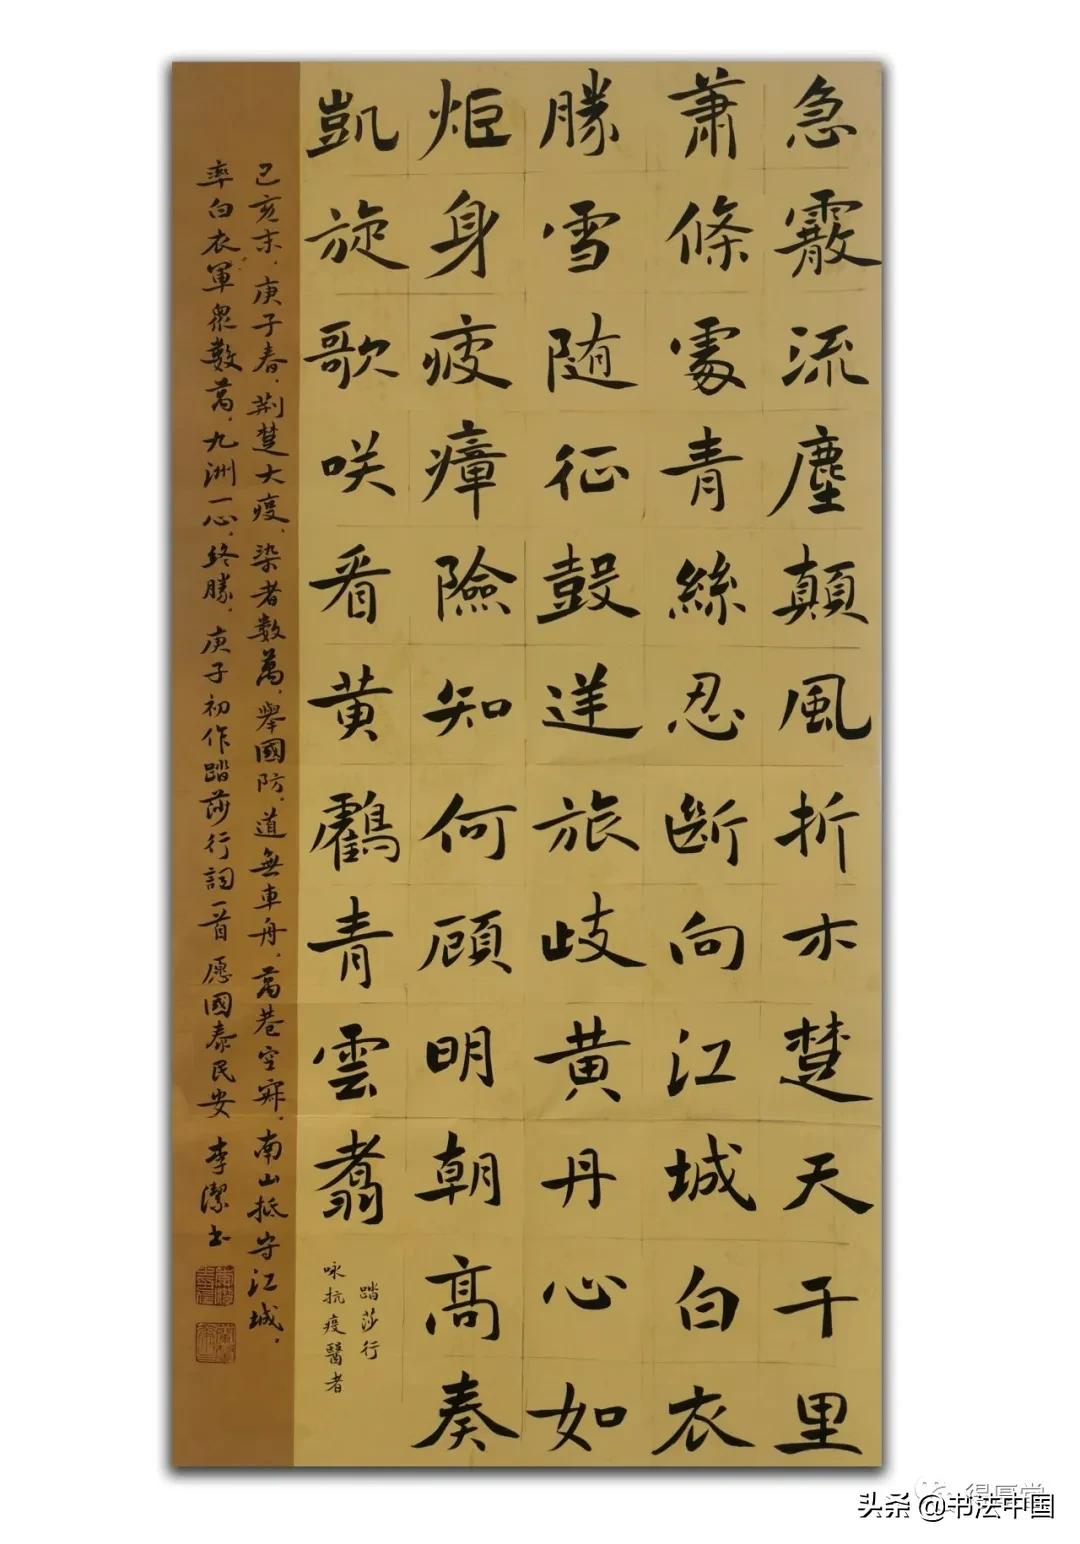 急霰流塵顛風折木楚天千里
蕭條處青絲忍斷向江城白衣
勝雪随征鼓逆旅歧黄丹心如
炬身疲瘴險知何顧明朝高奏
凱旋歌咲看黄鶴青雲翥
踏莎行
咏抗疫醫者
己亥末，庚子春，荆楚大疫，染者数萬，舉國防，道無車舟，萬巷空寂，南山抵守江城，
率白衣軍眾數萬，九洲一心，終勝，庚子初作踏莎行詞一首 愿國泰民安 李潔书
头条 @书法中国